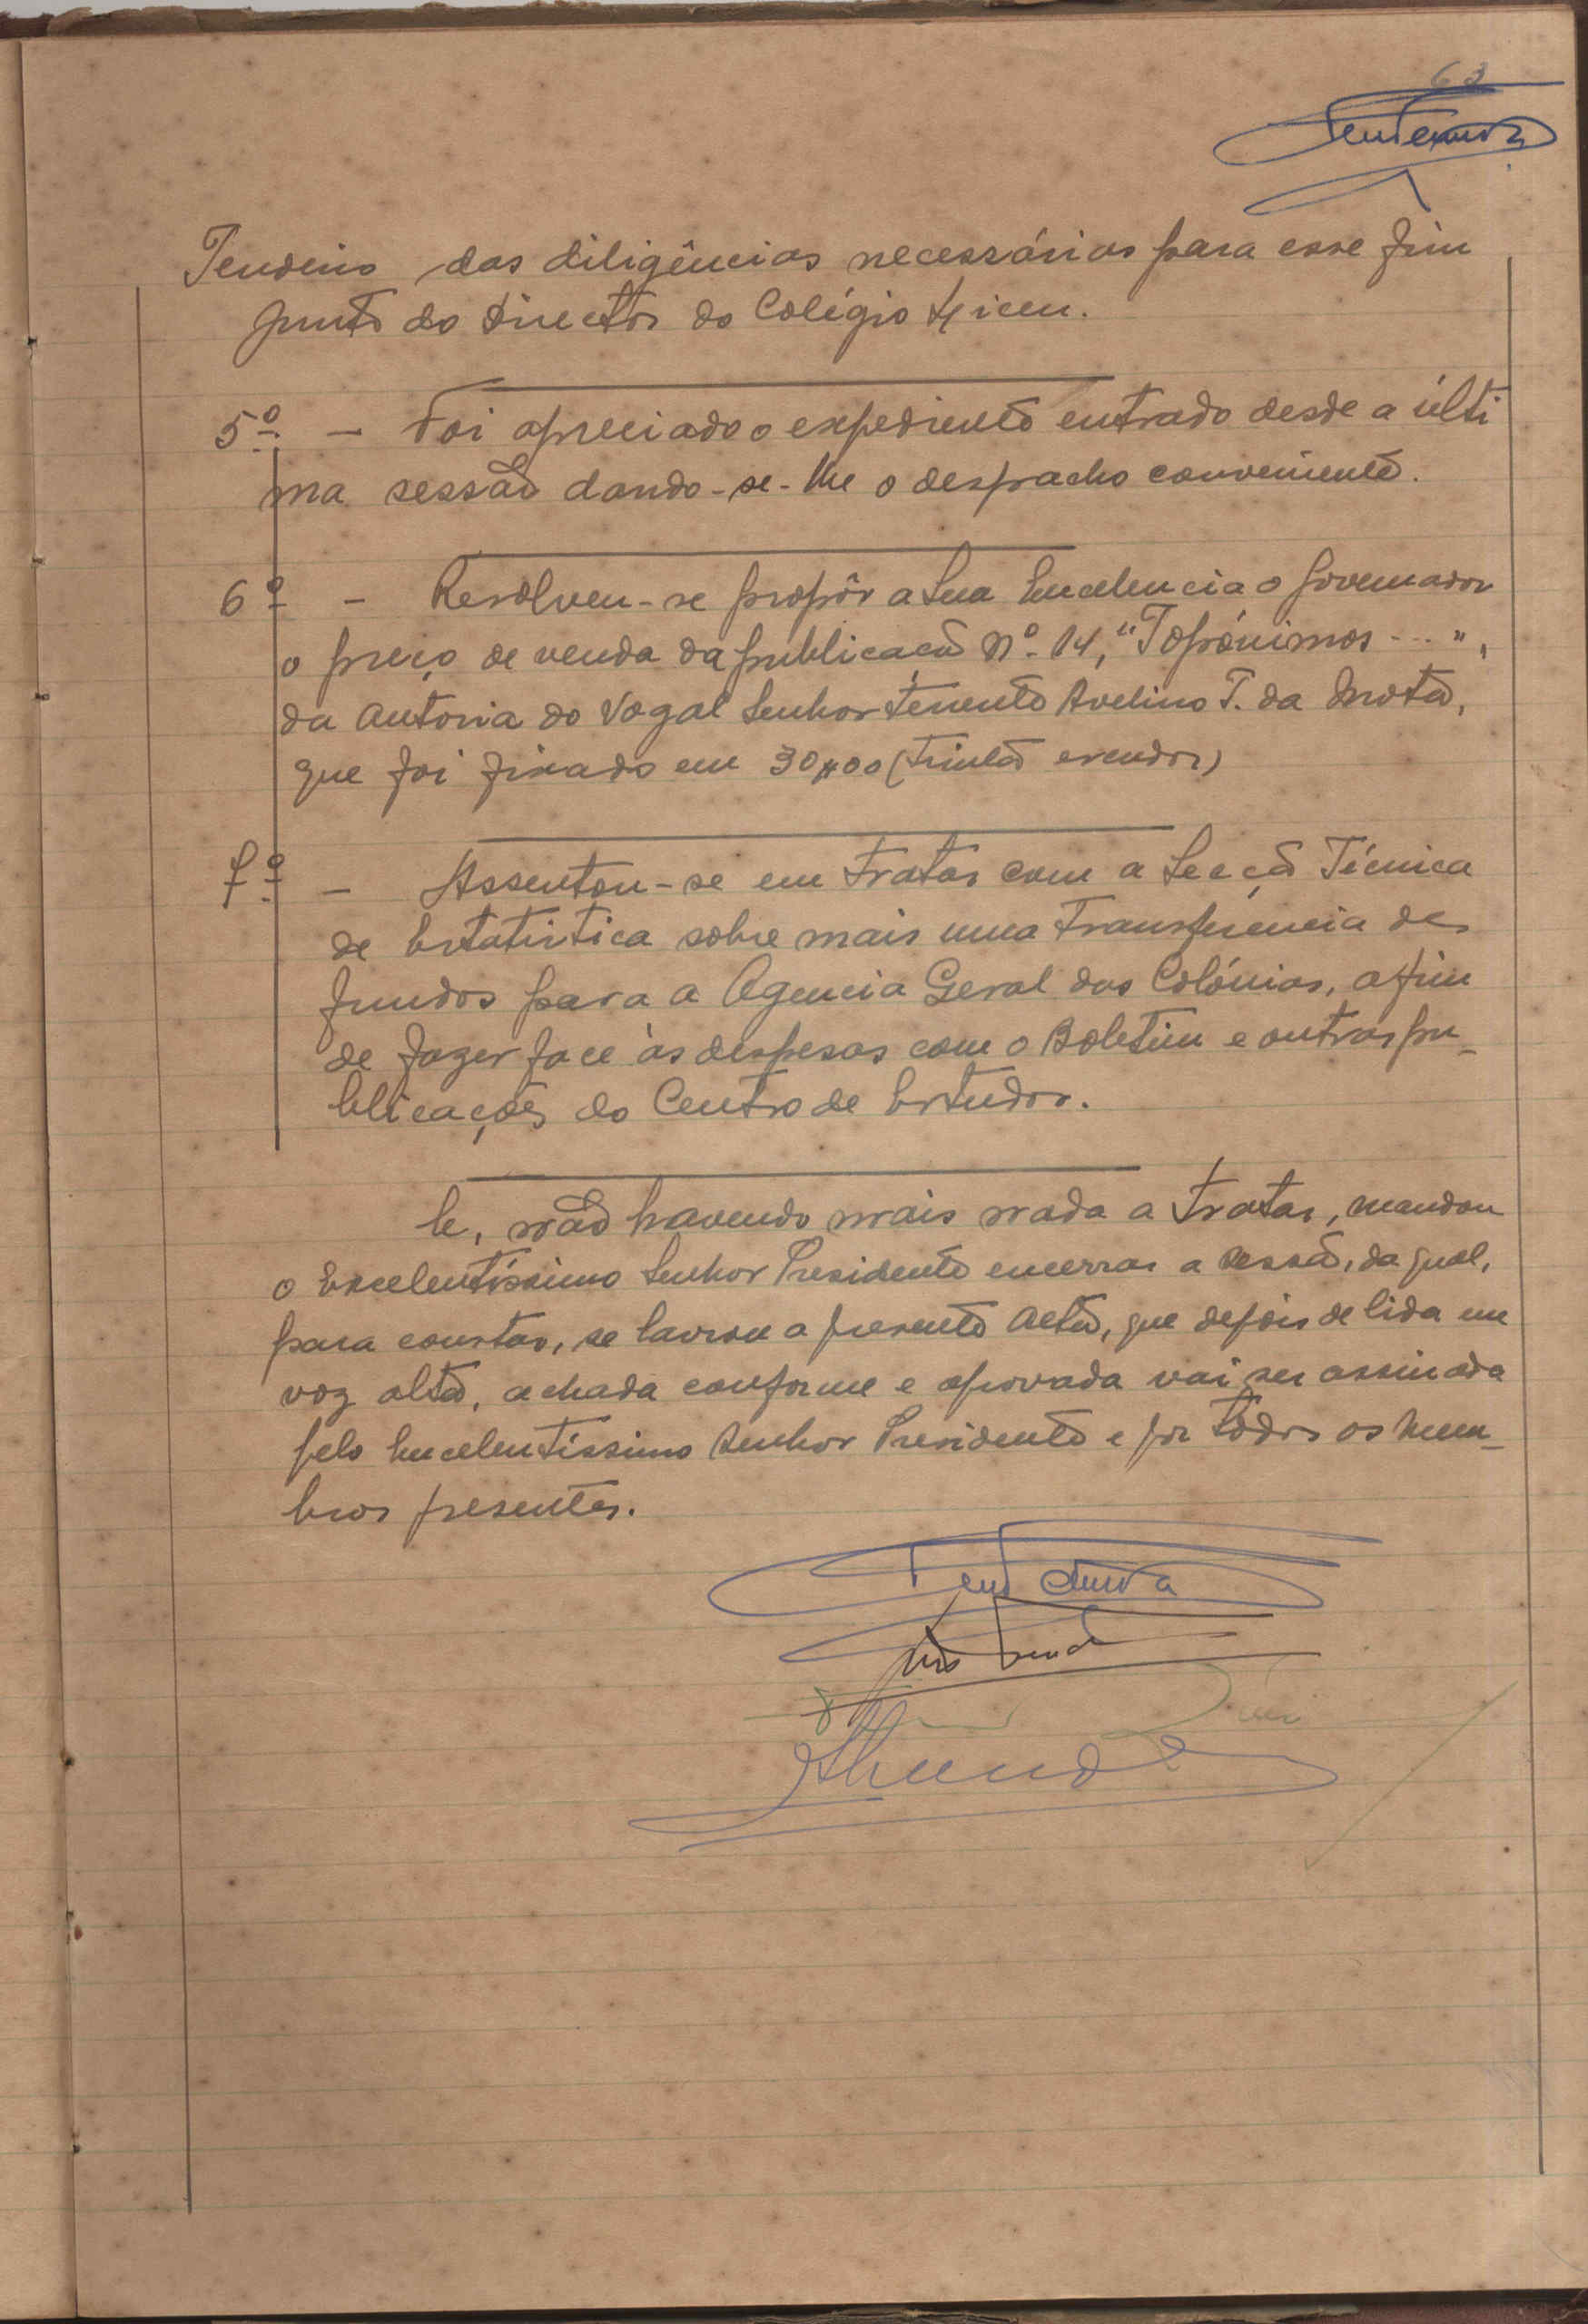 63
Tendeiro das diligências necessárias para esse fim
junto do Director do Colégio Liceu.
5º. - Foi apreciado o expediente entrado desde a últi
ma sessão dando-se-lhe o despacho conveniente.
6º - Resolveu-se propôr a Sua Excelencia o Governador
o preço de venda da publicação Nº. 14, "Topónimos ...",
da autoria do Vogal Senhor Tenente Avelino T. da Mota,
que foi fixado em 30$00 (trinta escudos)
7º. - Assentou-se em tratar com a Secção Técnica
de Estatistica sobre mais uma transferencia de
fundos para a Agencia Geral das Colónias, afim
de fazer face às despesas com o Boletim e outras pu-
blicações do Centro de Estudos.
E, não havendo mais nada a tratar, mandou
o Excelentíssimo Senhor Presidente encerrar a sessão, da qual,
para constar, se lavrou a presente acta, que depois de lida em
voz alta, achada conforme e aprovada vai ser assinada
pelo Excelentíssimo Senhor Presidente e por todos os Mem-
bros presentes.